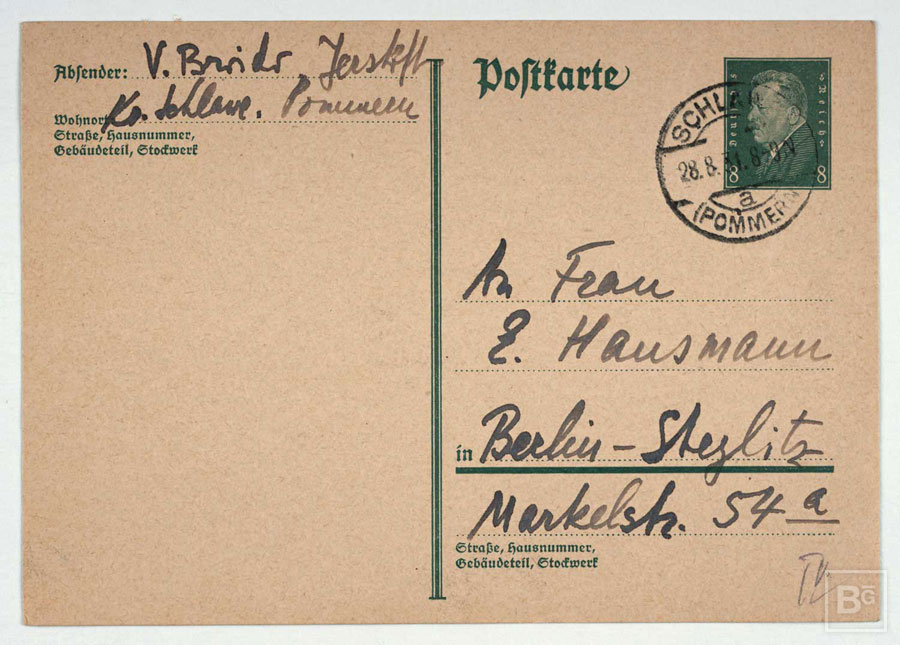 Absender: V. Broido, Jershöft
Kr. Schlawe. Pommern
Wohnort
Straße, Hausnummer,
Gebäudeteil, Stockwerk
Postkarte
Deutsches Reich
8 8
SCHLAWE
28.8.31.8-9N
a
(POMMERN)
An Frau
E. Hausmann
in Berlin-Steglitz
Markelstr. 54 a
Straße, Hausnummer,
Gebäudeteil, Stockwerk
BG